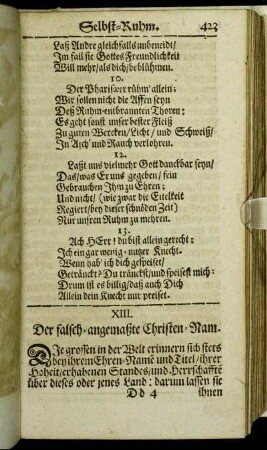 Selbst-Ruhm. 423
Laß Andre gleichfalls unbeneidt/
Im fall sie Gottes Freundlichkeit
Will mehr/als dich/beblühmen.
10.
Der Pharisäer rühm' allein;
Wir sollen nicht die Affen seyn
Deß Ruhm-entbrannten Thoren:
Es geht sonst unser bester Fleiß
Zu guten Wercken/Licht/und Schweiß/
In Asch' und Rauch verlohren.
12.
Laßt uns vielmehr Gott danckbar seyn/
Das/was Er uns gegeben/fein
Gebrauchen Ihm zu Ehren;
Und nicht/(wie zwar die Eitelkeit
Regiert/bey dieser schnöden Zeit)
Nur unsren Ruhm zu mehren.
13.
Ach HErr! du bist allein gerecht;
Ich ein gar wenig-nutzer Knecht.
Wenn hab' ich dich gespeiset/
Getränckt? Du tränckst/und speisest mich:
Drum ist es billig/daß auch Dich
Allein dein Knecht nur preiset.
XIII.
Der falsch-angemaßte Christen-Nam.
DJe grossen in der Welt erinnern sich stets
bey ihrem Ehren-Name und Titel/ihrer
Hoheit/erhabenen Standes/und Herrschafft
über dieses oder jenes Land: darum lassen sie
Dd 4 ihnen